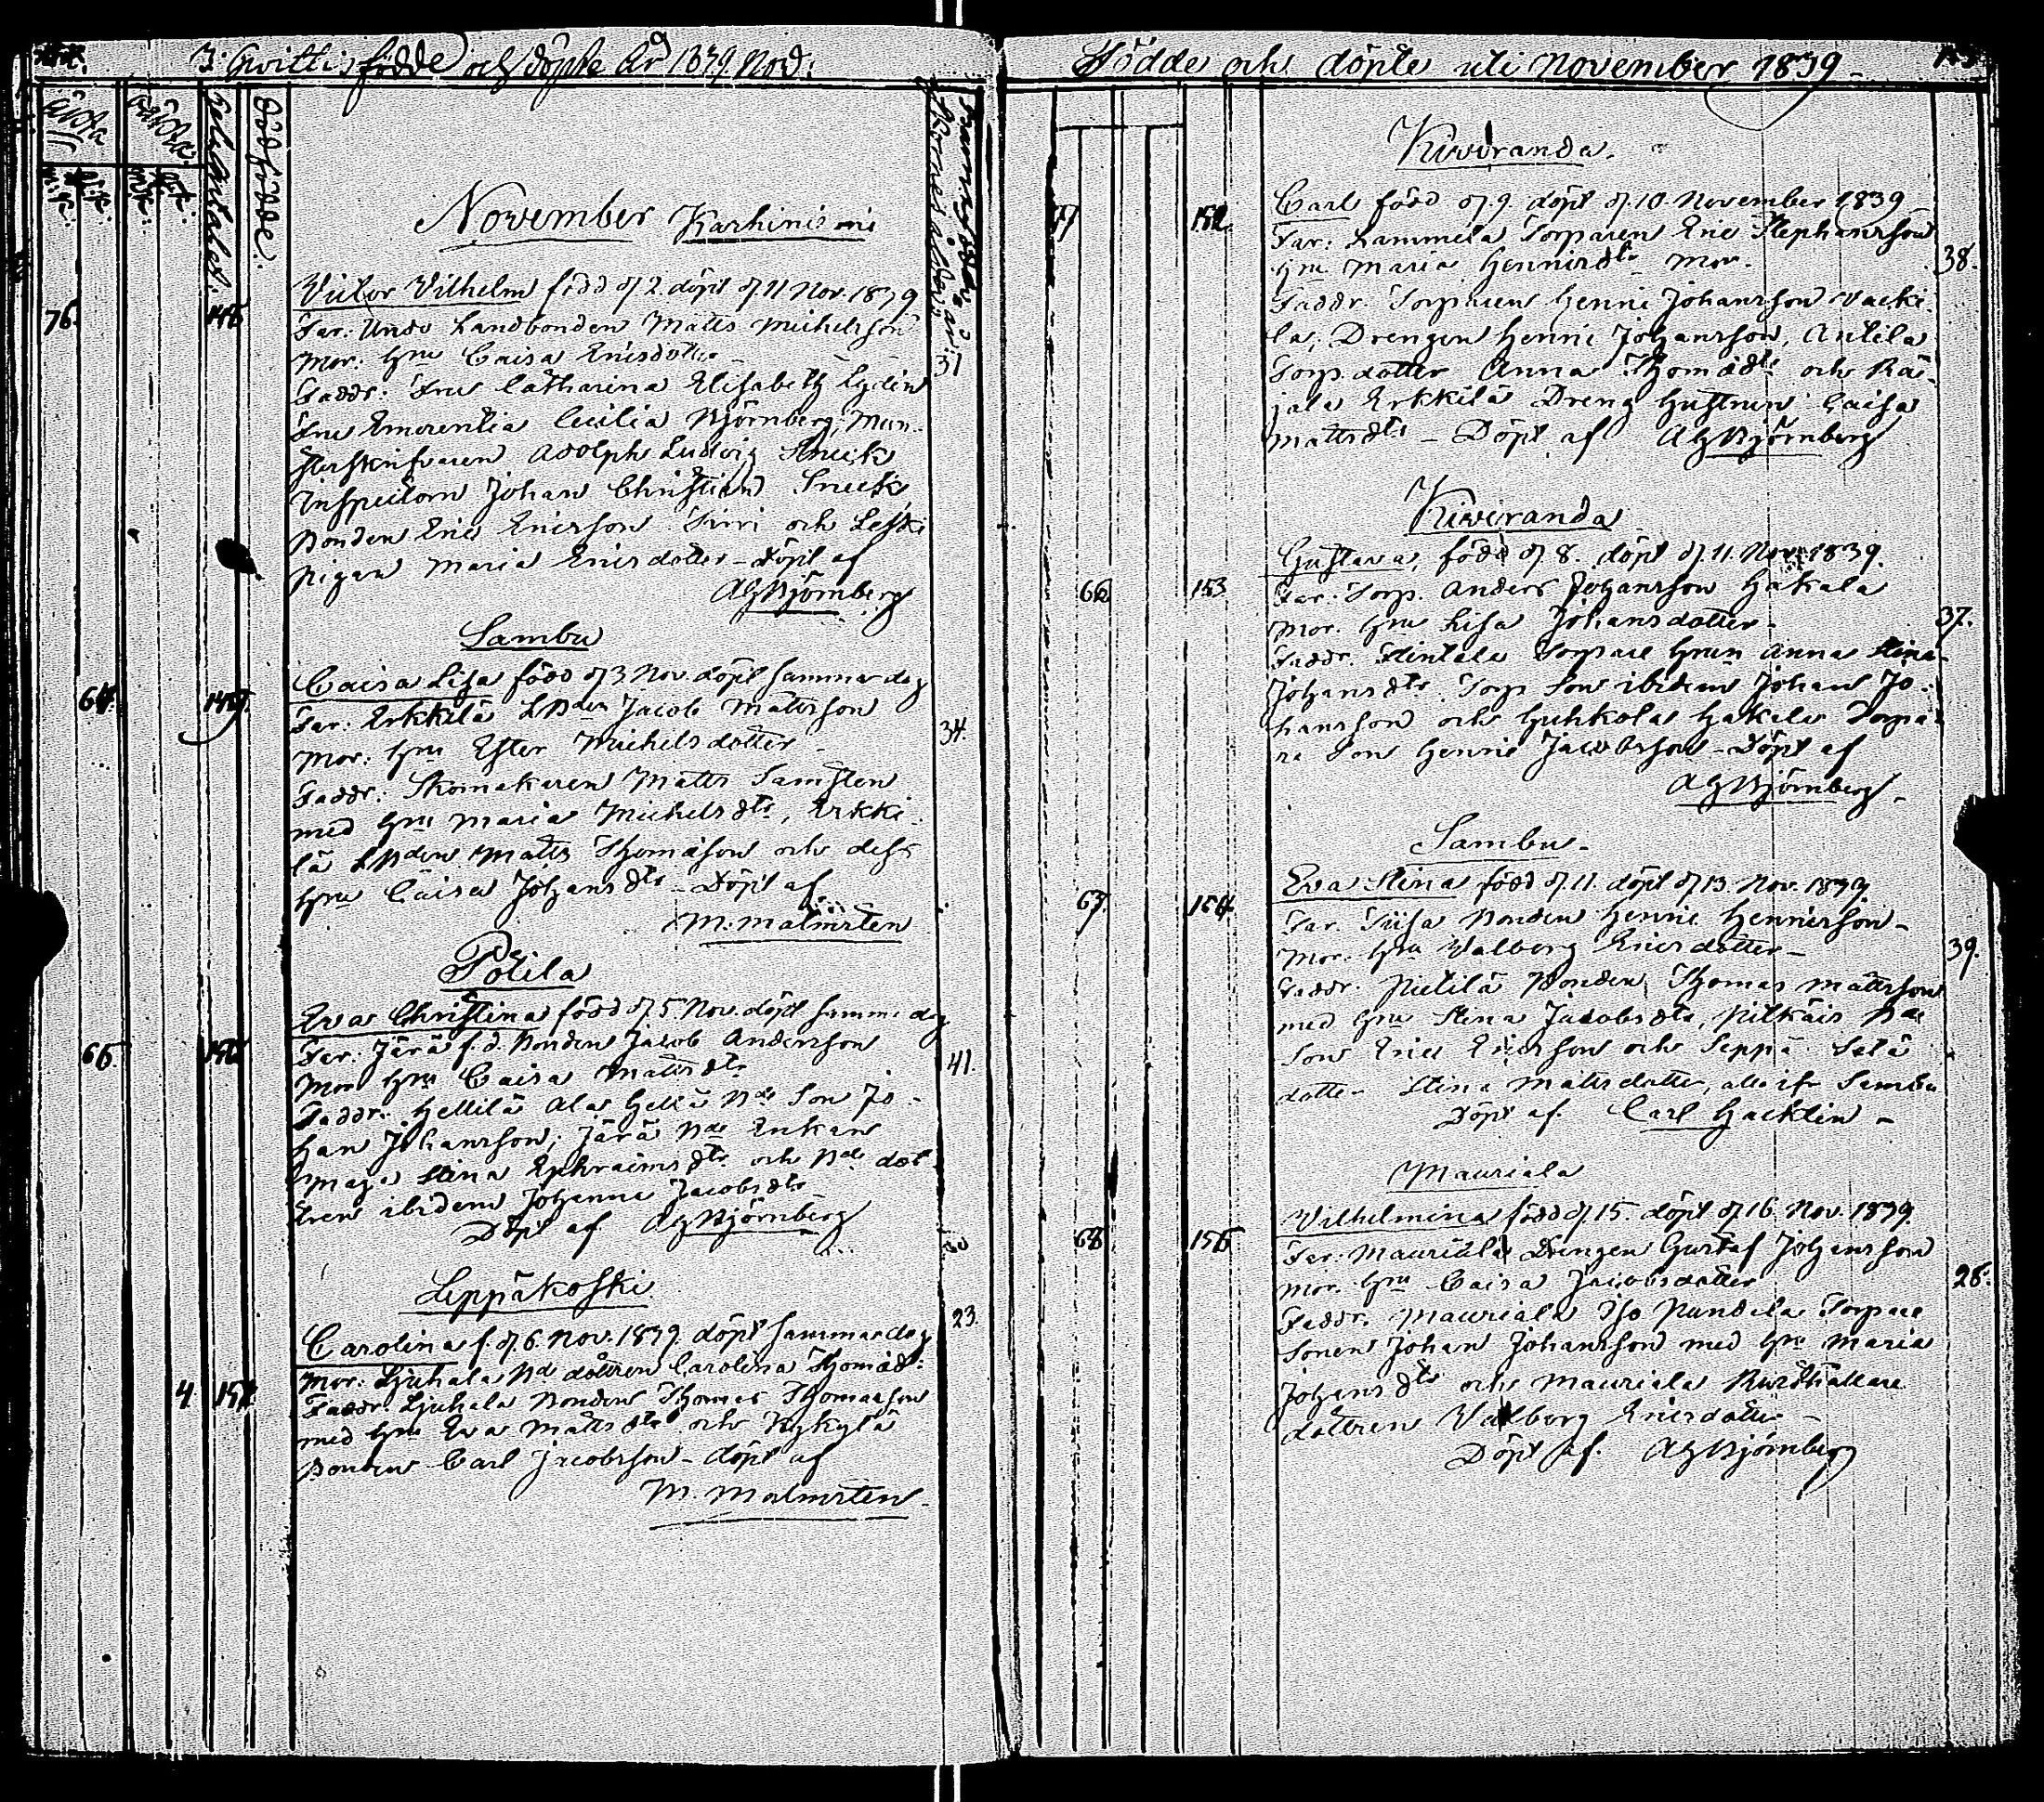 I Gvittis födde och döpte År 1839 Nov:
ägta
oägta
m.k.
q.k.
m.k.
q.k.
Hela Antalet.
Dödfödde.
Barnaföderskornes ålder, år
November Karhinisimi
Victor Vilhelm född d 2. döpt d 11 Nov. 1839
76. 148
Far: Undo Landbonden Matts Michelsson
Mor: Hru Caisa Ericsdotter 37
Faddr: Fru Catharina Elisabeth Lydén
Fru Emerentia Cecilia Björnberg, Mön-
sterskrifvaren Adolph Ludvig Sneck
Inspectorn Johan Christian Sneck,
Bonden Eric Ericsson och Leski
pigan Maria Ericsdotter - Döpt af
AGBjörnberg
Sambu
Caisa Lisa född d 3 Nov. döpt samma dag
64. 149.
Far: Erkkilä LBden Jacob Mattsson
Mor: Hru Ester Michelsdotter - 34.
Faddr: Skomakaren Matts Samsten
med Hru Maria Michelsdtr, Erkki-
lä LBden Matts Thomasson och dess
Hru Caisa Johansdtr - Döpt af
M. Malmsten
Potila
Eva Christina född d 5 Nov. döpt samma dag
65. 150
Far: Järä f.d. Bonden Jacob Andersson
Mor Hru Caisa Mattsdtr 41.
Faddr: Hellilä Ala Hellä Bde Son Jo-
han Johansson, Järä Bde Enkan
Maja Stina Ephraimsdtr och Bde dot-
tren ibidem Johanna Jacobsdtr
Döpt af AGBjörnberg
Leppäkoski
Carolina f. d 6. Nov. 1839. döpt samma dag
23.
Mor: Ljuhala Bde dottren Carolina Thomasdr:
4. 151
Faddr: Ljuhala Bonden Thomas Thomasson
med Hru Eva Mattsdtr och Kykylä
Bonden Carl Jacobsson - döpt af
M. Malmsten
Födde och döpte uti November 1839 -
Kiviranda.
Carl född d 9. döpt d 10 November 1839
77 152.
Far: Lammela Torparen Eric Stephansson
Hru Maria Henricsdtr Mor. 38.
Faddr: Torparen Henric Johansson Vacki-
la, Drengen Henric Johansson, Antila
Torp. dotter Anna Thomasdtr och Rä-
jala Erkkilä Dreng Hustrun Caisa
Mattsdtr - Döpt af AGBjörnberg
Kiviranda
Gustava, född d 8. döpt d 11. Nov. 1839.
66 153
Far: Torp. Anders Johansson Hakala
Mor. Hru Lisa Johansdotter - 37.
Faddr. Torpare Hrun Anna Stina
Johansdtr Torp. Son ibidem Johan Jo-
hansson och Huhkola Hakala Torpa-
re Son Henric Jacobsson - Döpt af
AGBjörnberg -
Sambu -
Eva Stina född d 11. döpt d 13. Nov. 1839
67. 154.
Far. Bonden Henric Henricsson -
Mor: Hru Valborg Ericsdotter - 39.
Faddr: Pietilä Bonden Thomas Mattsson
med Hru Stina Jacobsdtr, Bde
Son Eric Ericsson och Seppä
dotter Stina Mattsdotter, alle ifr Sambu
Döpt af. Carl Hacklin -
Mauriala
Vilhelmina född d 15. döpt d 16 Nov. 1839.
68 155
Far: Mauriala Drengen Gustaf Johansson
Mor. Hru Caisa Jacobsdotter 26.
Faddr. Mauriala Iso Torpare
Sonen Johan Johansson med Hru Maria
Johansdtr och Mauriala Rusthållare
dottren Valborg Ericsdotter -
Döpt af. AGBjörnberg